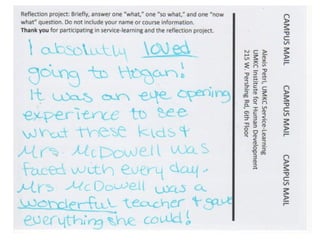 Reflection project: Briefly, answer one "what," one "so what," and one "now
what" question. Do not include your name or course information.
Thank you for participating in service-learning and the reflection project.
I absolutly loved
going to Hogan!
It was an eye opening
experience to see
what these kids &
Mrs. McDowell was
faced with every day.
Mrs McDowell was a
wonderful teacher & gave
everything she could!
CAMPUS MAIL CAMPUS MAIL CAMPUS MAIL
Alexis Petri, UMKC Service-Learning
UMKC Institute for Human Development
215 W. Pershing Rd, 6th Floor